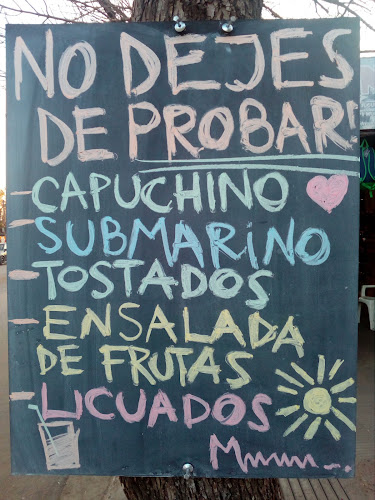 NO DEJES
DE PROBAR!
- CAPUCHINO
- SUBMARINO
- TOSTADOS
- ENSALADA
DE FRUTAS
- LICUADOS
Mmmm...